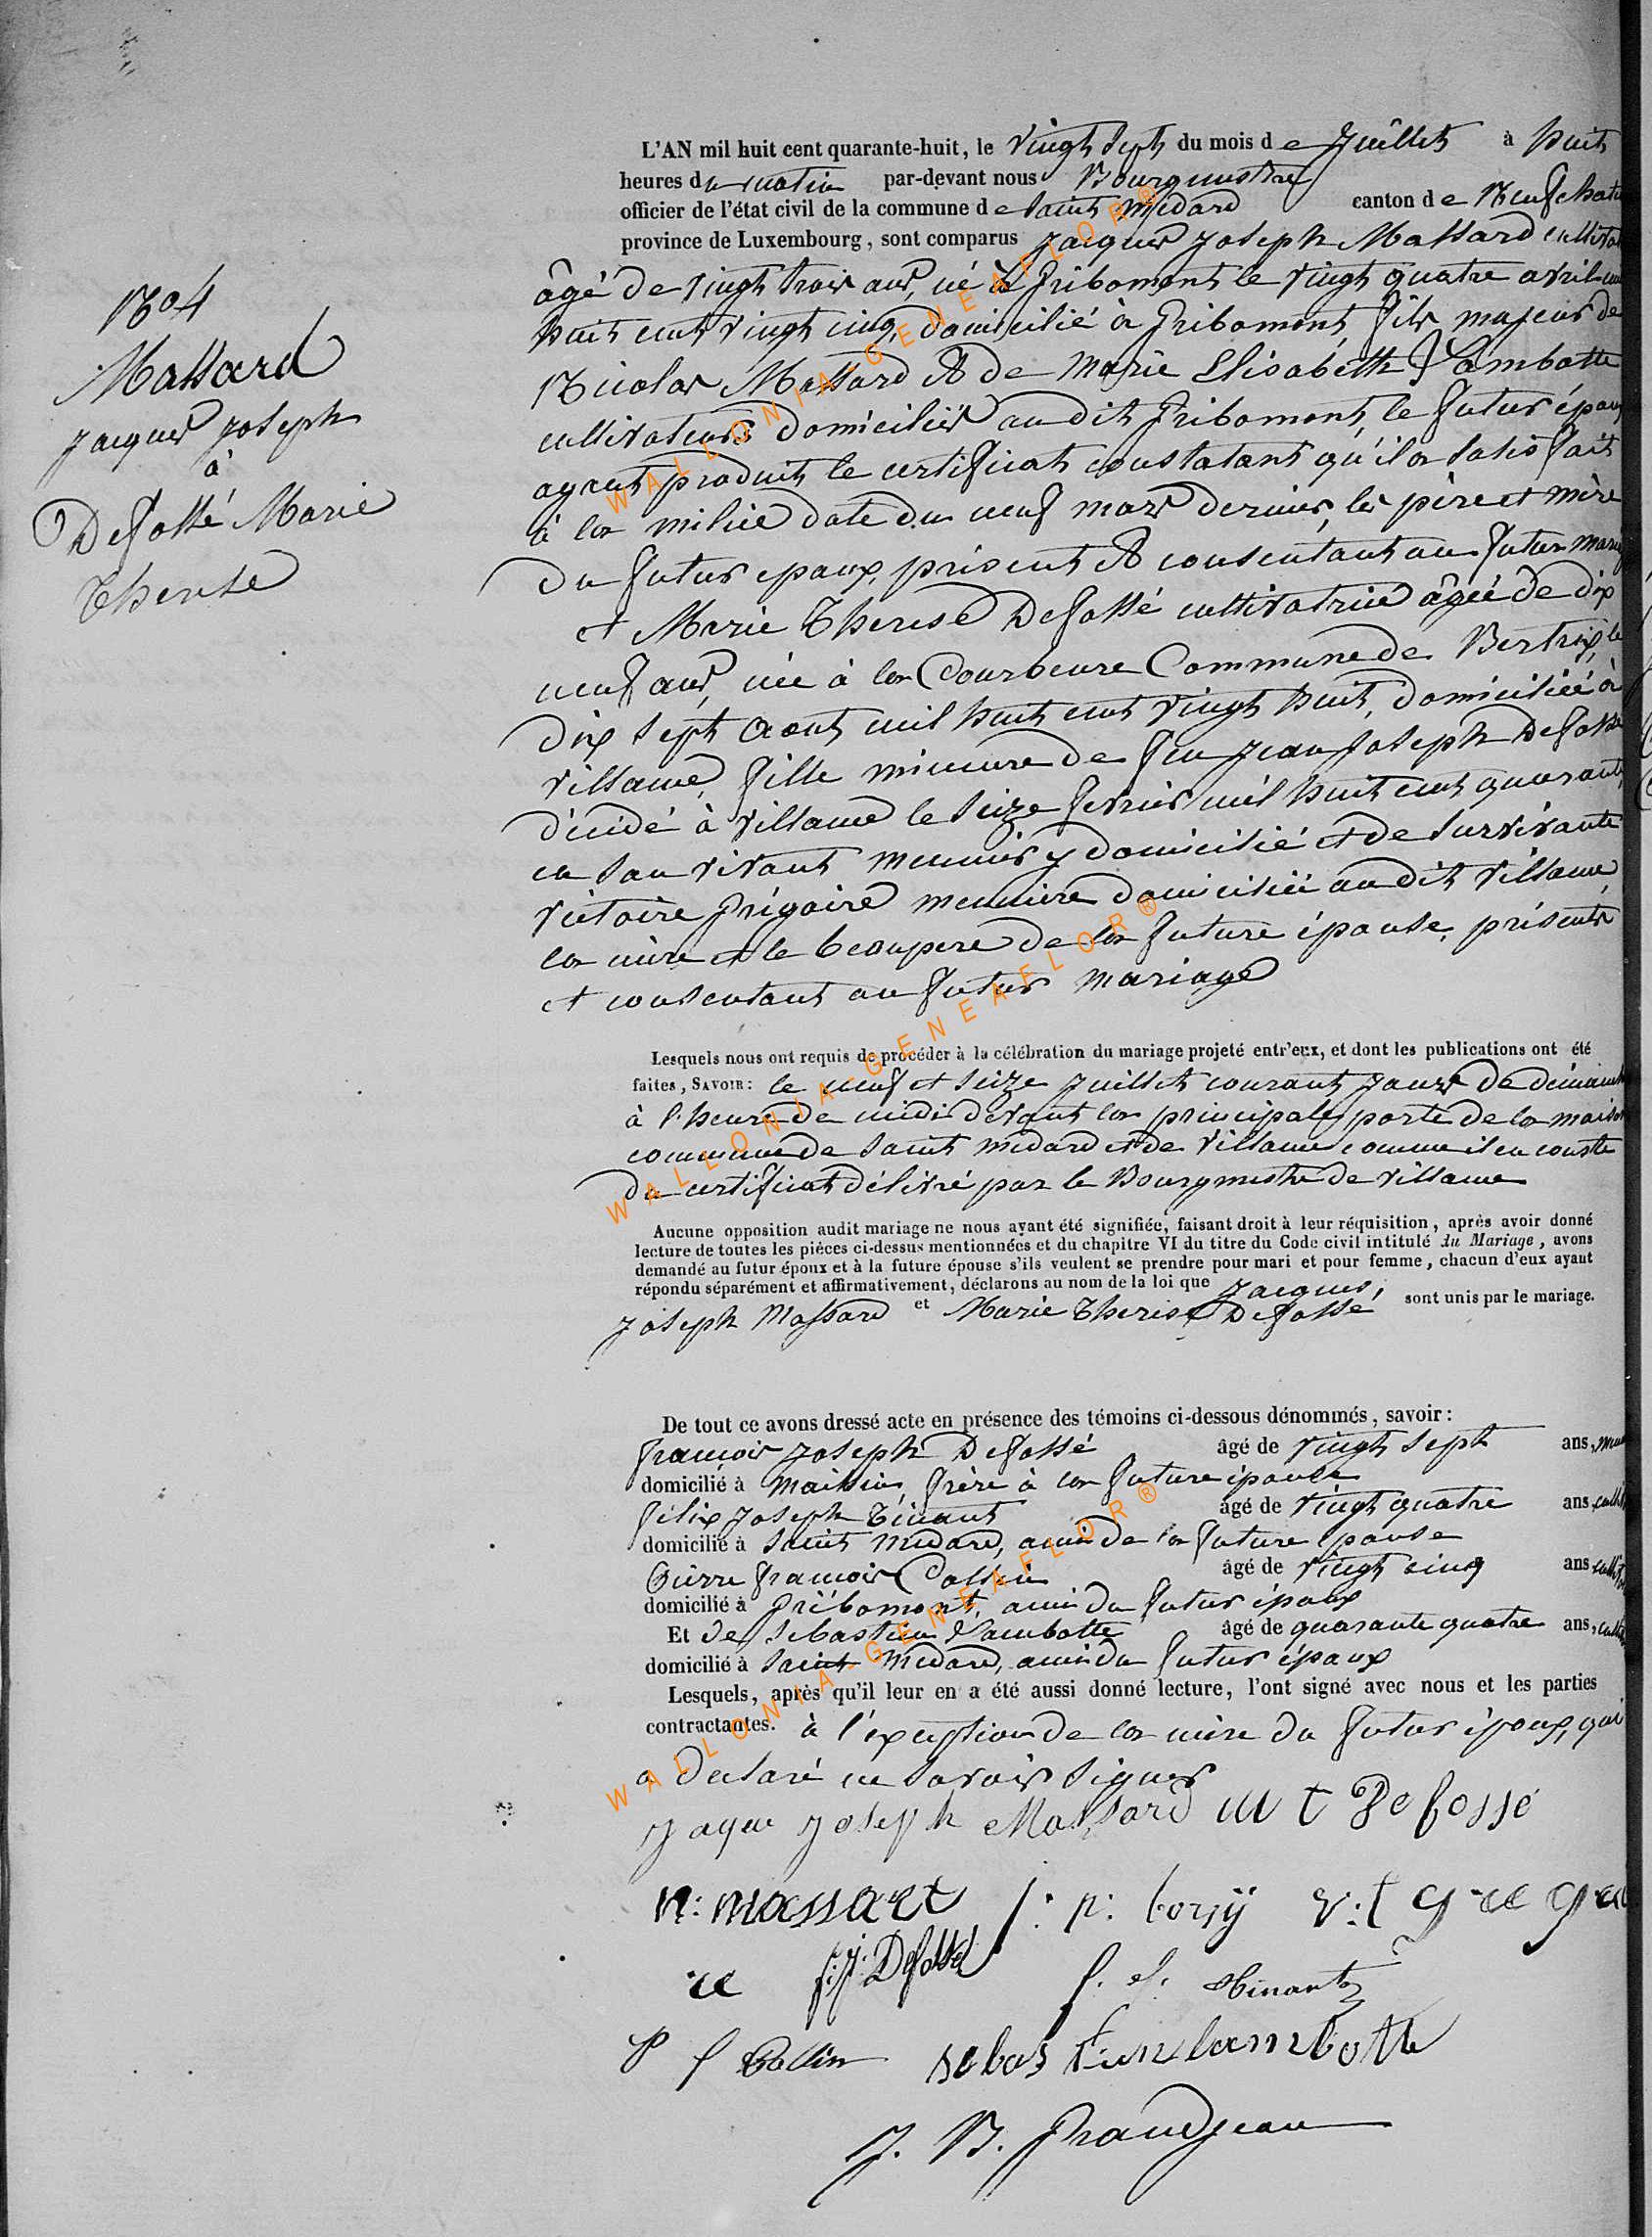 N° 4
Massard
Jacques Joseph
à
Defossé Marie
Therese
L'AN mil huit cent quarante-huit, le vingt sept du mois de Juillet à huit
heures du matin par-devant nous Bourgmestre
officier de l'état civil de la commune de Saint Médard canton de Neufchateau
province de Luxembourg, sont comparus Jacques Joseph Massard cultivateur
âgé de vingt trois ans, né à Gribomont le vingt quatre avril mil
huit cent vingt cinq, domicilié à Gribomont, fils majeur de
Nicolas Massard & de Marie Elisabeth Lambotte
cultivateurs domiciliés au dit Gribomont, le futur époux
ayant produit le certificat constatant qu'il a satisfait
à la milice date du neuf mars dernier, les père et mère
du futur epoux, présent & consentant au futur mariage
et Marie Therese Defossé cultivatrice âgée de dix
neuf ans, née à la Courbeure Commune de Bertrix, le
dix sept Aout mil huit cent vingt huit, domiciliée à
Villance, fille mineure de feu Jean Joseph Defossé
décédé à Villance le seize fevrier mil huit cent quarante,
en son vivant meunier y domicilié et de survivante
Victoire Grégoire meunière domiciliée au dit Villance,
la mère et le beaupere de la future épouse, présents
et consentant au futur mariage
Lesquels nous ont requis de procéder à la célébration du mariage projeté entr'eux, et dont les publications ont été
faites, SAVOIR: le neuf et seize Juillet courant jours de dimanche
à l'heure de midi devant la principale porte de la maison
commune de Saint Médard et de Villance comme il en conste
du certificat délivré par le Bourgmestre de Villance
Aucune opposition audit mariage ne nous ayant été signifiée, faisant droit à leur réquisition, après avoir donné
lecture de toutes les pièces ci-dessus mentionnées et du chapitre VI du titre du Code civil intitulé du Mariage, avons
demandé au futur époux et à la future épouse s'ils veulent se prendre pour mari et pour femme, chacun d'eux ayant
répondu séparément et affirmativement, déclarons au nom de la loi que Jacques,
Joseph Massard et Marie Therese Defosse sont unis par le mariage.
De tout ce avons dressé acte en présence des témoins ci-dessous dénommés, savoir:
François Joseph Defossé âgé de vingt sept ans,
domicilié à Maissin, frère à la future épouse
Félix Joseph Tinant âgé de vingt quatre ans,
domicilié à Saint Médard, ami de la future épouse
Pierre François Collin âgé de vingt cinq ans
domicilié à Gribomont, ami du futur époux
Et de Sebastien Lambotte âgé de quarante quatre ans,
domicilié à Saint Médard, ami du futur époux
Lesquels, après qu'il leur en a été aussi donné lecture, l'ont signé avec nous et les parties
contractantes. à l'exception de la mère du futur époux, qui
a declaré ne savoir signer
Jaque Joseph Massard M t Defossé
n: massart j: p: V: t gregoi
re f: j: Defossé f. j. thinant
P f Collin sebastien lambotte
J. B. Grandjean
WALLONIA-GENEAFLOR®
WALLONIA-GENEAFLOR®
WALLONIA-GENEAFLOR®